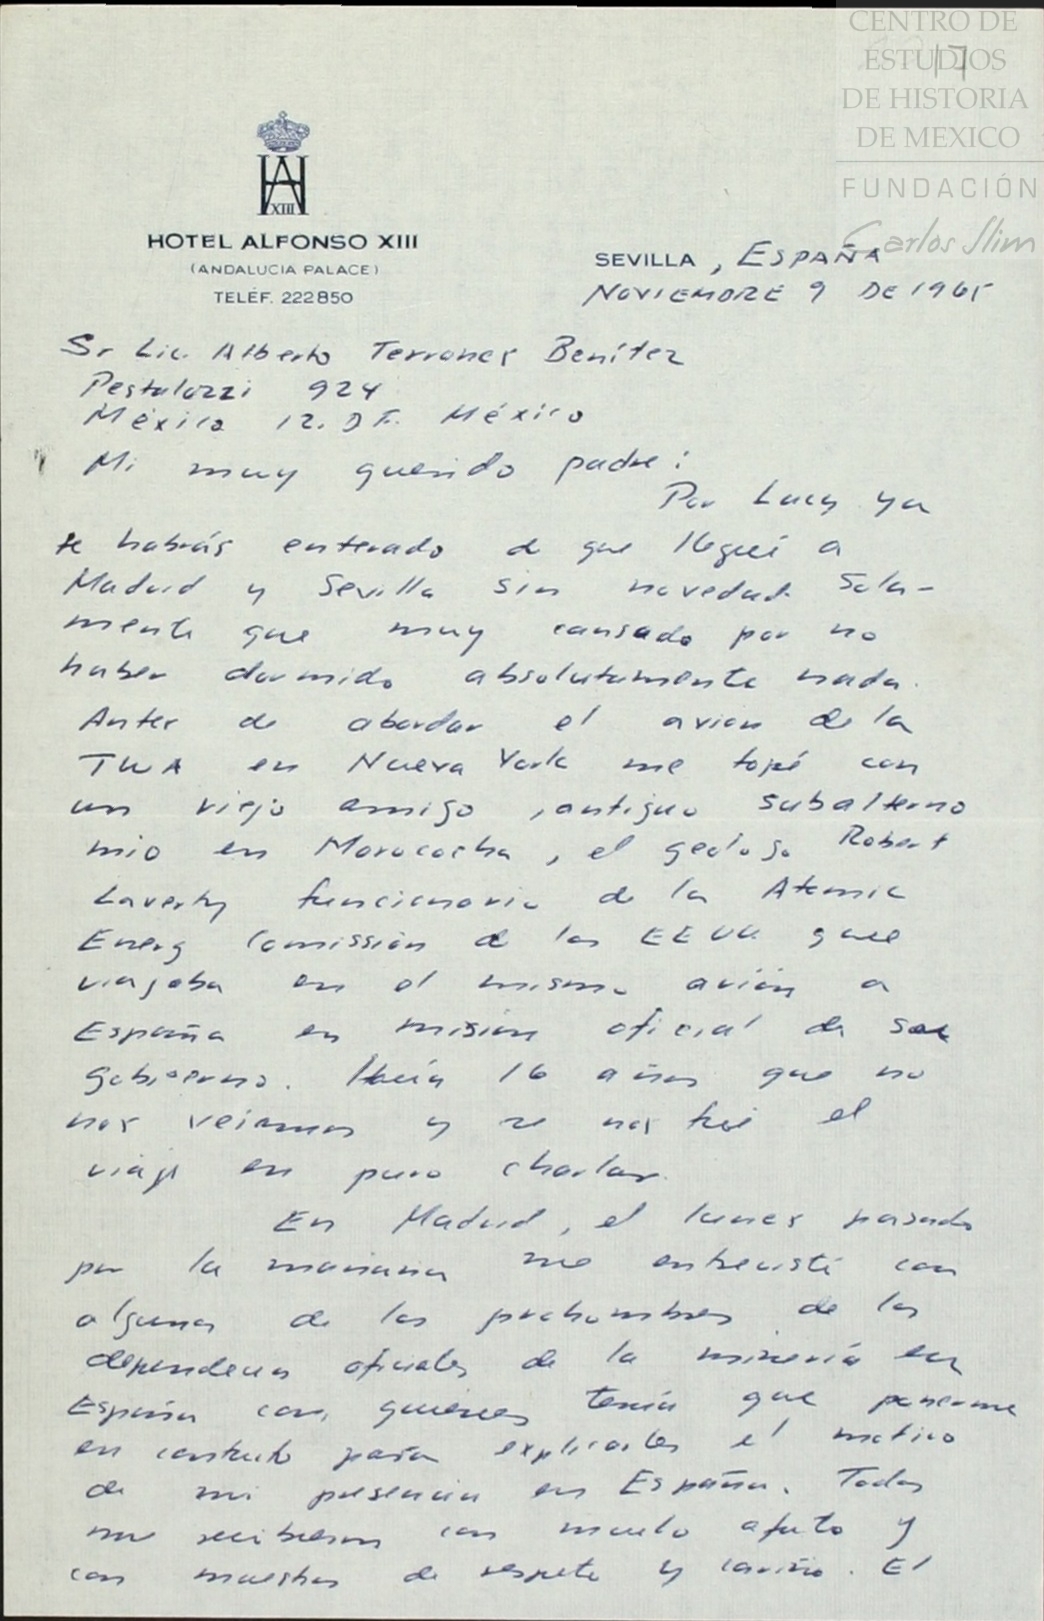 CENTRO DE
ESTUDIOS
DE HISTORIA
DE MEXICO
FUNDACIÓN
Carlos Slim
17
HA
XIII
HOTEL ALFONSO XIII
(ANDALUCIA PALACE)
TELÉF. 222850
SEVILLA, ESPAÑA
NOVIEMBRE 9 DE 1965
Sr Lic. Alberto Terrones Benítez
Pestalozzi 924
México 12. D F. México
Mi muy querido padre:
Por Lucy ya
te habrás enterado de que llegué a
Madrid y Sevilla sin novedad. Sola-
mente que muy cansado por no
haber dormido absolutamente nada.
Antes de abordar el avion de la
TWA en Nueva York me topé con
un viejo amigo, antiguo subalterno
mio en Morococha, el geologo Robert
Laverty funcionario de la Atomic
Energ Comissión de los EEUU que
viajaba en el mismo avión a
España en misión oficial de su
gobierno. Hacía 16 años que no
nos veiamos y se nos fué el
viaje en puro charlar.
En Madrid, el lunes pasado
por la mañana me entrevisté con
algunos de los prohombres de las
dependencias oficiales de la minería en
España con quienes tenía que ponerme
en contacto para explicarles el motivo
de mi presencia en España. Todos
me recibieron con mucho afecto y
con muestras de respeto y cariño. El